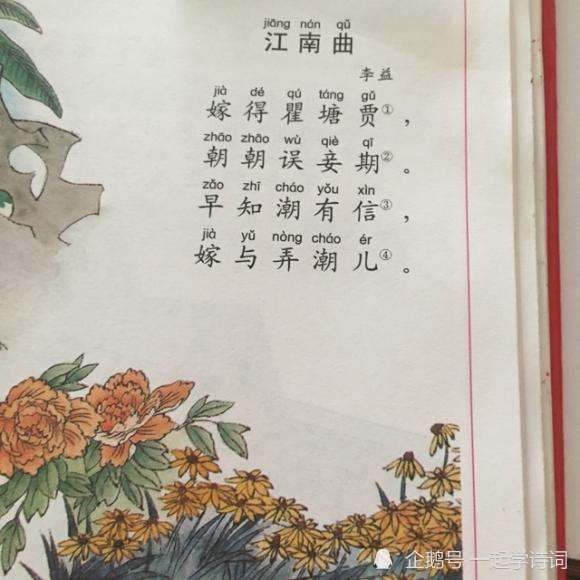 jiāng nán qǔ
江南曲
李益
jià dé qú táng gǔ
嫁得瞿塘贾①，
zhāo zhāo wù qiè qī
朝朝误妾期②。
zǎo zhī cháo yǒu xìn
早知潮有信③，
jià yǔ nòng cháo ér
嫁与弄潮儿④。
企鹅号 一起学诗词